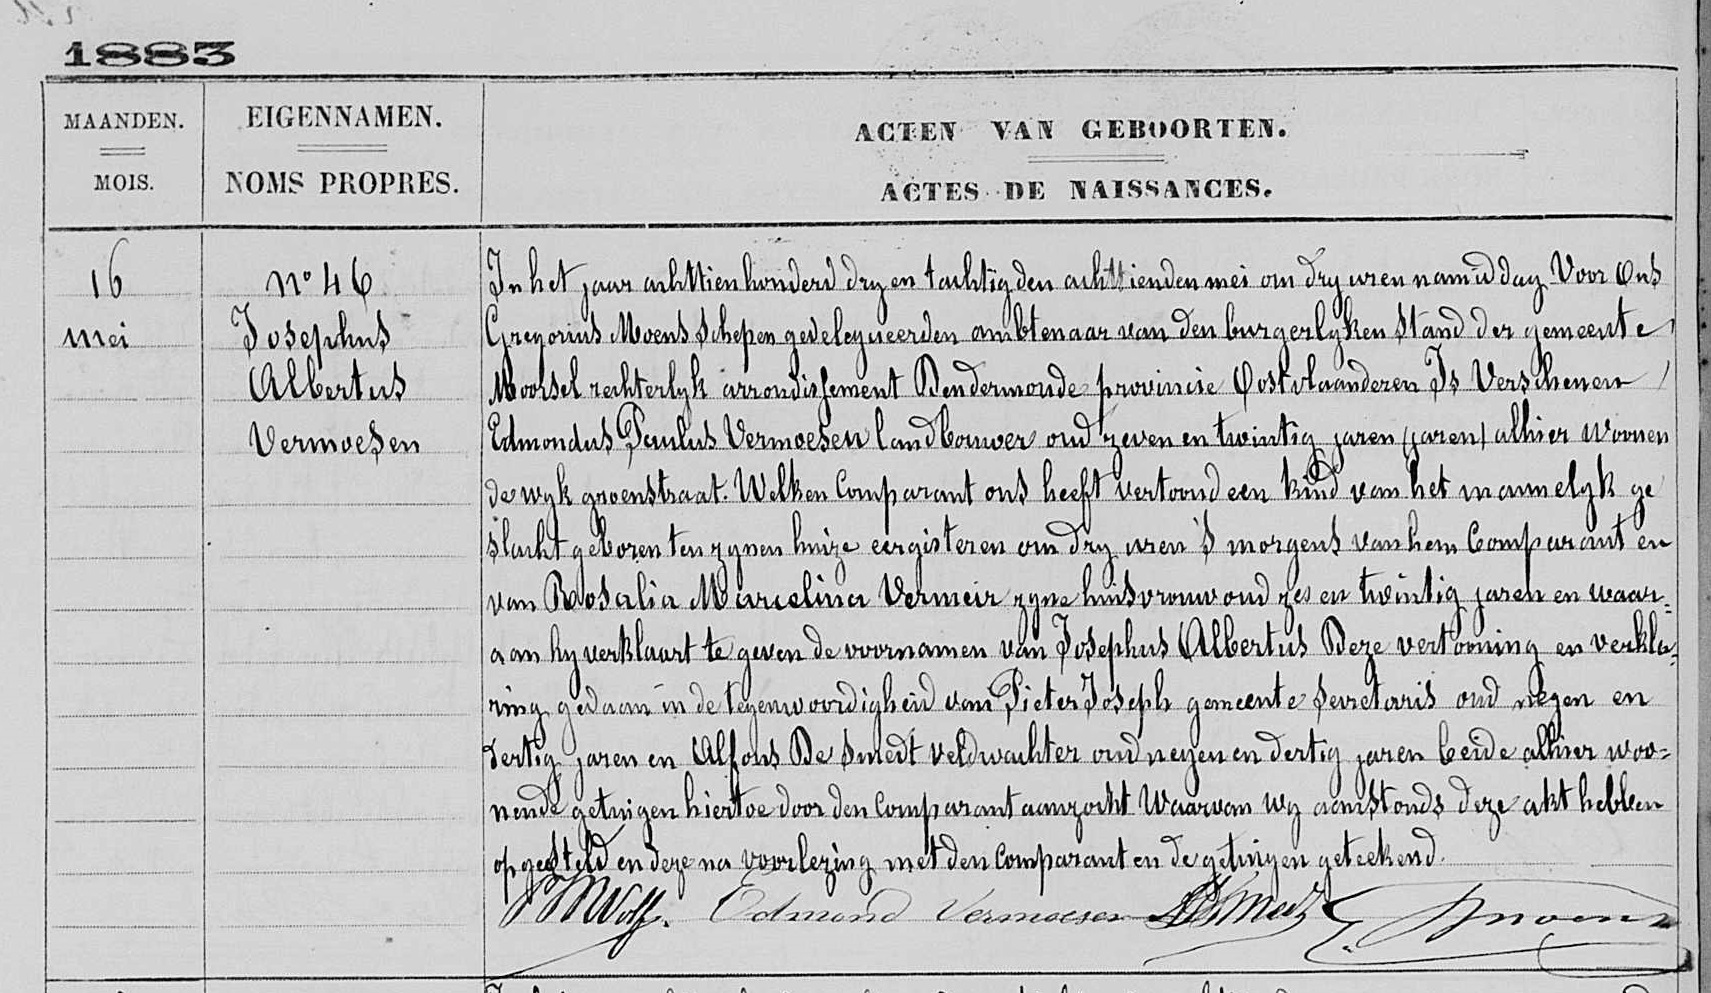 1883
MAANDEN.
MOIS.
EIGENNAMEN.
NOMS PROPRES.
ACTEN VAN GEBOORTEN.
ACTES DE NAISSANCES.
16
mei
N° 46
Josephus
Albertus
Vermoesen
In het jaar achttien honderd dry en tachtig den achttienden mei om dry uren namiddag Voor Ons
Gregorius Moens Schepen gedelegueerden ambtenaar van den burgerlyken stand der gemeente
Moorsel rechterlyk arrondissement Dendermonde provincie Oostvlaanderen Is Verschenen
Edmondus Paulus Vermoesen landbouwer oud zeven en twintig jaren (jaren) alhier woonen
de wyk groenstraat. Welken Comparant ons heeft vertoond een kind van het mannelyk ge
slacht geboren ten zynen huize eergisteren om dry uren 's morgens van hem Comparant en
van Rosalia Marcelina Vermeir zyne huisvrouw oud zes en twintig jaren en waar=
aan hy verklaart te geven de voornamen van Josephus Albertus Deze vertooning en verkla=
ring gedaan in de tegenwoordigheid van Pieter Joseph gemeente secretaris oud negen en
dertig jaren en Alfons De Smedt veldwachter oud negen en dertig jaren beide alhier woo=
nende getuigen hiertoe door den comparant aanzocht Waarvan wy aanstonds deze akt hebben
opgesteld en deze na voorlezing met den comparant en de getuigen geteekend.
Edmond Vermoesen G. Moens